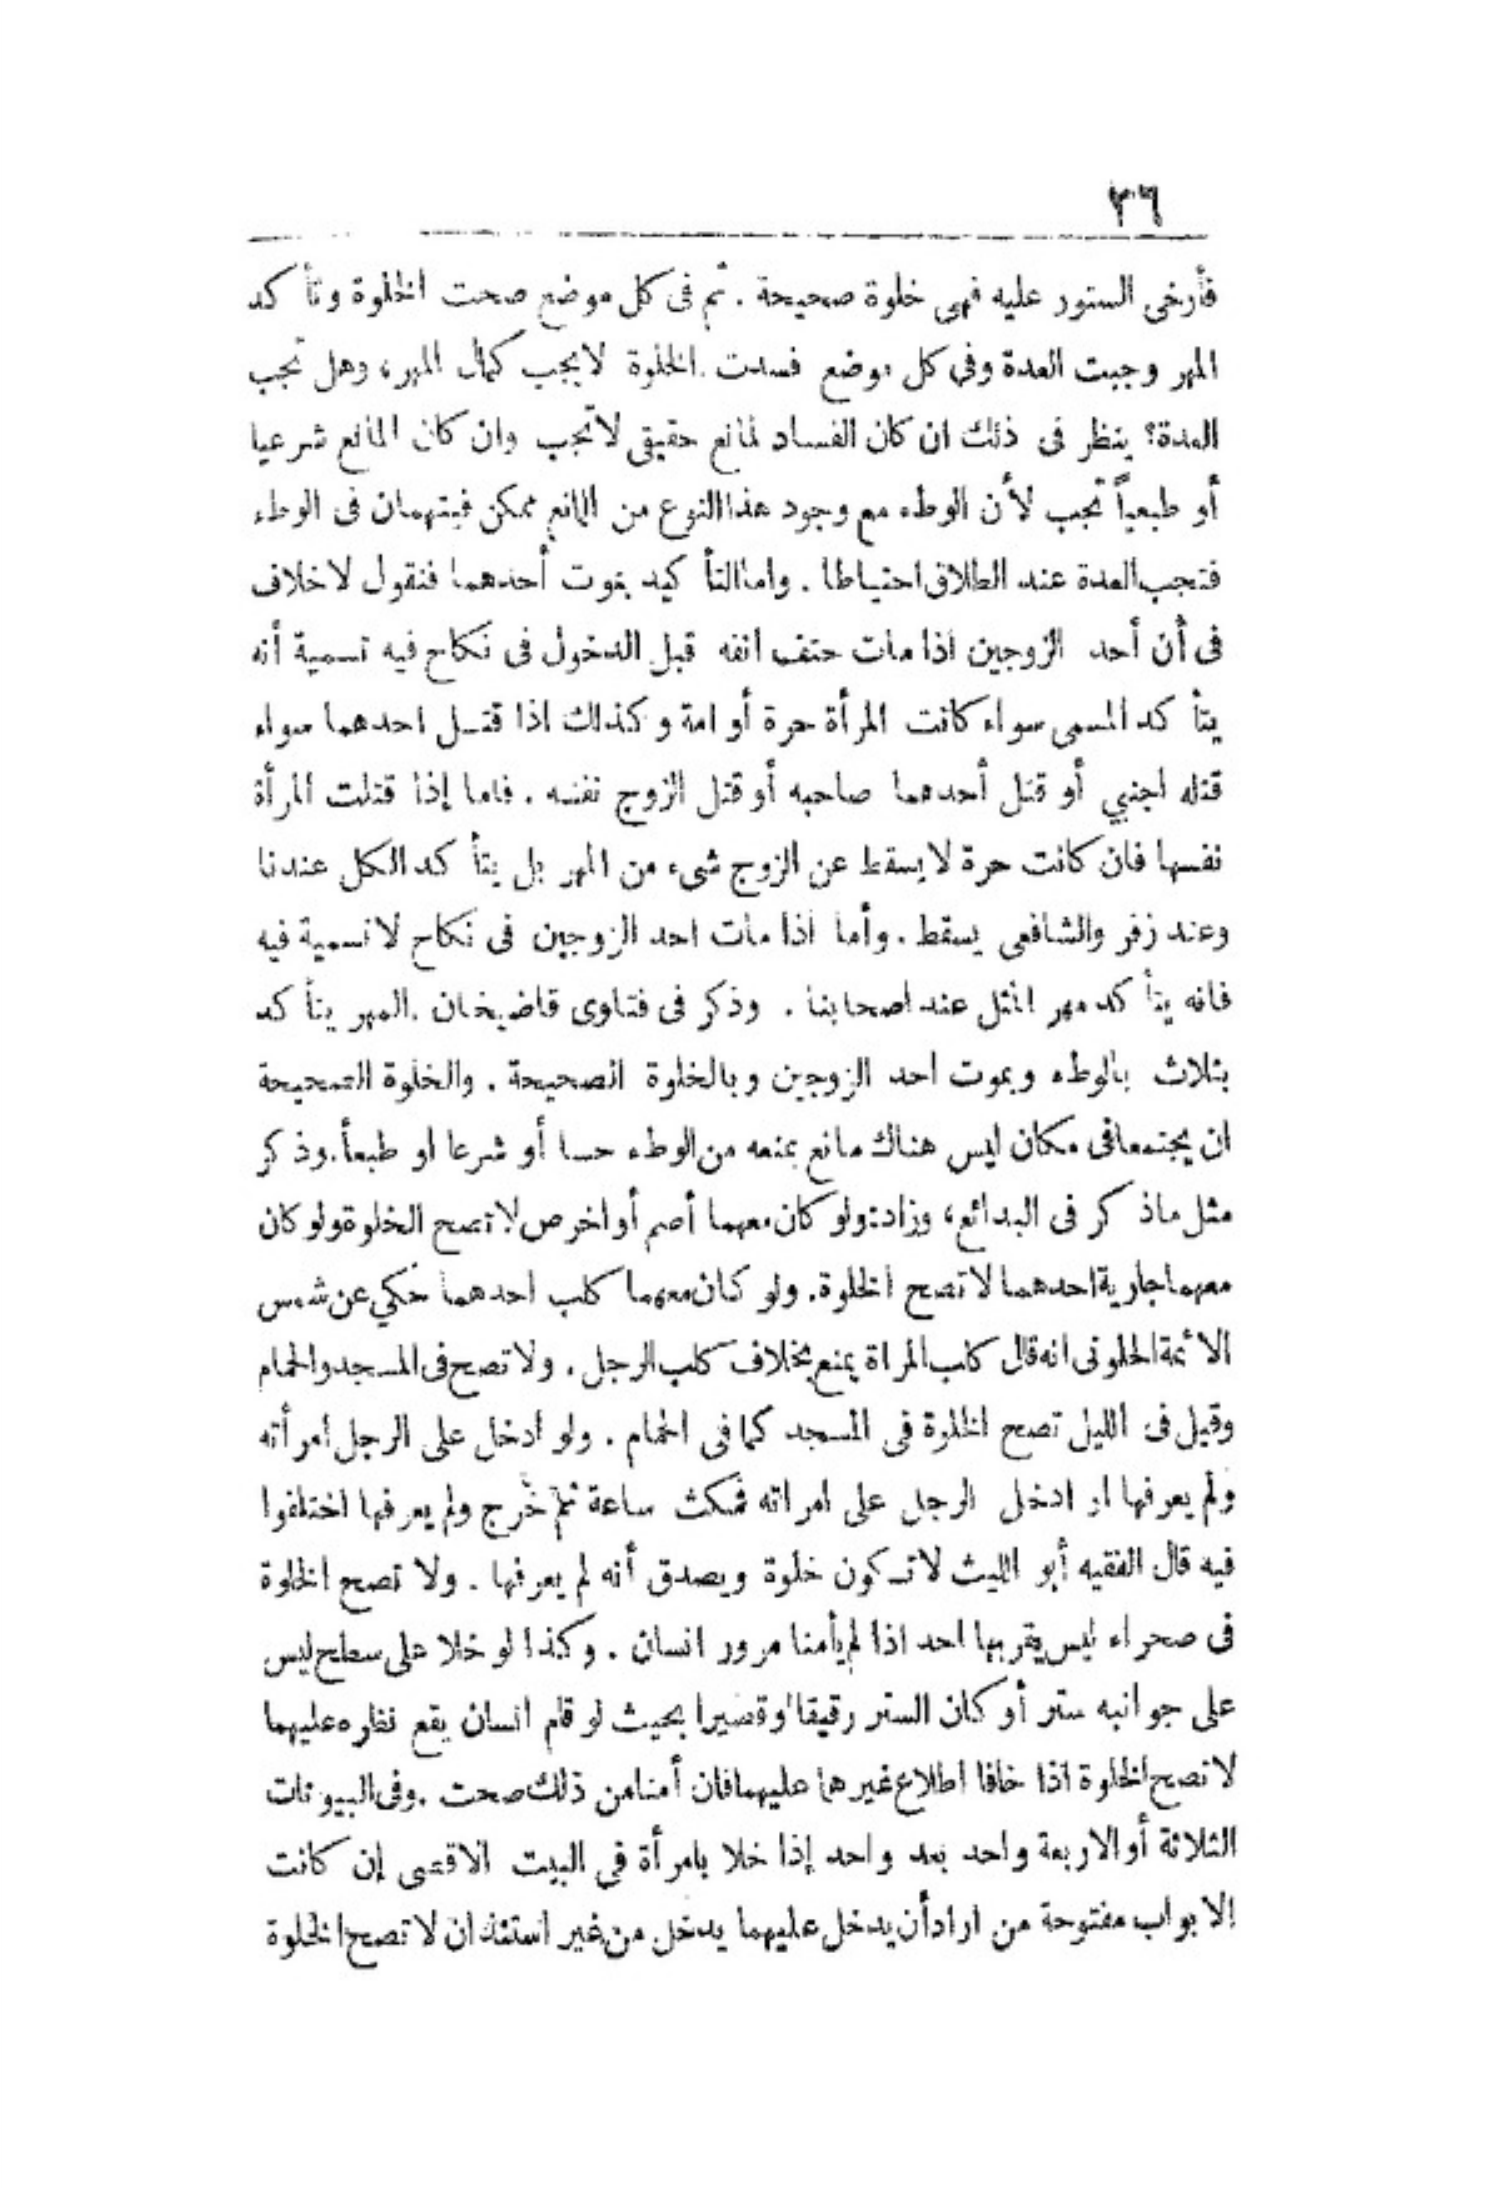 ٣٦
فأرخى الستور عليه فهى خلوة صحيحة . ثم فى كل موضع صحت الخلوة وتأكد
المهر وجبت العدة وفى كل موضع فسدت الخلوة لايجب كمال المهر، وهل تجب
العدة؟ ينظر فى ذلك ان كان الفساد لمانع حقيقى لاتجب وان كان المانع شرعيا
أو طبعياً تجب لأن الوطء مع وجود هذا النوع من المانع ممكن فيتهمان فى الوطء
فتجب العدة عند الطلاق احتياطا . واما التأكيد بموت أحدهما فنقول لا خلاف
فى أن أحد الزوجين اذا مات حتف انفه قبل الدخول فى نكاح فيه تسمية أنه
يتأكد المسمى سواء كانت المرأة حرة أو امة وكذلك اذا قتل احدهما سواء
قتله اجنبي أو قتل أحدهما صاحبه أو قتل الزوج نفسه . فاما إذا قتلت المرأة
نفسها فان كانت حرة لا يسقط عن الزوج شىء من المهر بل يتأكد الكل عندنا
وعند زفر والشافعى يسقط . وأما اذا مات احد الزوجين فى نكاح لا تسمية فيه
فانه يتأكد مهر المثل عند اصحابنا . وذكر فى فتاوى قاضيخان المهر يتأكد
بثلاث بالوطء وبموت احد الزوجين وبالخلوة الصحيحة . والخلوة الصحيحة
ان يجتمعا فى مكان ليس هناك مانع يمنعه من الوطء حسا أو شرعا او طبعاً . وذكر
مثل ماذكر فى البدائع، وزاد: ولو كان معهما أصم أو اخرص لا تصح الخلوة ولو كان
معهما جارية احدهما لا تصح الخلوة. ولو كان معهما كلب احدهما حكي عن شمس
الأئمة الحلونى انه قال كلب المراة يمنع بخلاف كلب الرجل . ولا تصح فى المسجد والحمام
وقيل فى الليل تصح الخلوة فى المسجد كما فى الحمام . ولو ادخل على الرجل امرأته
ولم يعرفها او ادخل الرجل على امراته فمكث ساعة ثم خرج ولم يعرفها اختلفوا
فيه قال الفقيه أبو الليث لا تكون خلوة ويصدق أنه لم يعرفها . ولا تصح الخلوة
فى صحراء ليس يقربها احد اذا لم يأمنا مرور انسان . وكذا لو خلا على سطح ليس
على جوانبه ستر أو كان الستر رقيقا او قصيرا بحيث لو قام انسان يقع نظره عليهما
لا تصح الخلوة اذا خافا اطلاع غيرهما عليهما فان أمنا من ذلك صحت . وفى البيوتات
الثلاثة أو الاربعة واحد بعد واحد إذا خلا بامرأة في البيت الاقصى إن كانت
الابواب مفتوحة من اراد أن يدخل عليهما يدخل من غير استئذان لا تصح الخلوة